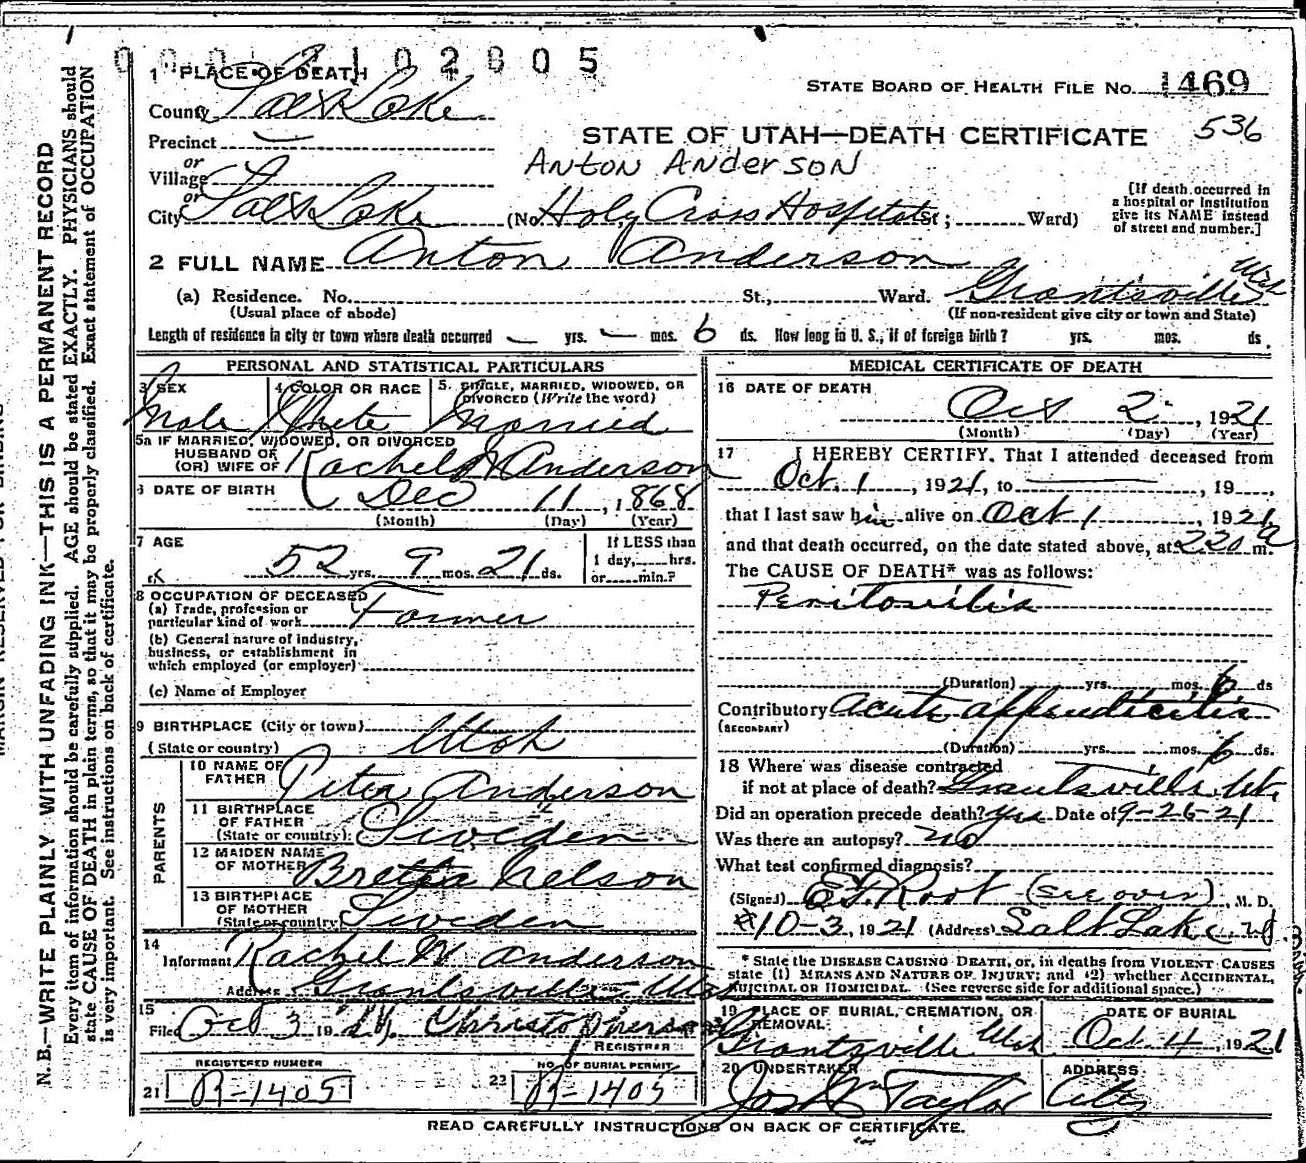 1 PLACE OF DEATH
STATE BOARD OF HEALTH FILE No. 1469
County Salt Lake
Precinct —
STATE OF UTAH—DEATH CERTIFICATE 536
or
Village
ANTON ANDERSON
or
City Salt Lake (No. Holy Cross Hospital St.; Ward)
[If death occurred in
a hospital or institution
give its NAME instead
of street and number.]
2 FULL NAME Anton Anderson
(a) Residence. No. St., Ward. Grantsville Utah
(Usual place of abode) (If non-resident give city or town and State)
Length of residence in city or town where death occurred — yrs. — mos. 6 ds. How long in U. S., if of foreign birth? yrs. mos. ds.
PERSONAL AND STATISTICAL PARTICULARS
3 SEX 4 COLOR OR RACE 5. SINGLE, MARRIED, WIDOWED, OR
DIVORCED (Write the word)
Male White Married
5a IF MARRIED, WIDOWED, OR DIVORCED
HUSBAND OF
(OR) WIFE OF Rachel W Anderson
6 DATE OF BIRTH Dec 11, 1868
(Month) (Day) (Year)
7 AGE
52 yrs. 9 mos. 21 ds.
If LESS than
1 day, hrs.
or min.?
8 OCCUPATION OF DECEASED
(a) Trade, profession or
particular kind of work Farmer
(b) General nature of industry,
business, or establishment in
which employed (or employer)
(c) Name of Employer
9 BIRTHPLACE (City or town)
(State or country) Utah
PARENTS
10 NAME OF
FATHER Peter Anderson
11 BIRTHPLACE
OF FATHER
(State or country) Sweden
12 MAIDEN NAME
OF MOTHER Bretta Nelson
13 BIRTHPLACE
OF MOTHER
(State or country) Sweden
14
Informant Rachel W Anderson
Address Grantsville Utah
15
Filed Oct 3 1921. Christopherson
REGISTRAR
REGISTERED NUMBER NO. OF BURIAL PERMIT
21 R-1405 22 R-1405
MEDICAL CERTIFICATE OF DEATH
16 DATE OF DEATH
Oct 2, 1921
(Month) (Day) (Year)
17 I HEREBY CERTIFY, That I attended deceased from
Oct. 1, 1921, to —, 19
that I last saw him alive on Oct 1 1921
and that death occurred, on the date stated above, at 220 a m.
The CAUSE OF DEATH* was as follows:
Peritonitis
(Duration) yrs. mos. 6 ds
Contributory Acute appendicitis
(SECONDARY)
(Duration) yrs. mos. 6 ds.
18 Where was disease contracted
if not at place of death? Grantsville, Ut.
Did an operation precede death? yes Date of 9-26-21
Was there an autopsy? no
What test confirmed diagnosis?
(Signed) E. F. Root (see over), M. D.
10-3, 1921 (Address) Salt Lake
* State the DISEASE CAUSING DEATH, or, in deaths from VIOLENT CAUSES
state (1) MEANS AND NATURE OF INJURY; and (2) whether ACCIDENTAL,
SUICIDAL OR HOMICIDAL. (See reverse side for additional space.)
19 PLACE OF BURIAL, CREMATION, OR
REMOVAL
DATE OF BURIAL
Grantsville Utah Oct 4, 1921
20 UNDERTAKER ADDRESS
Jos Wm Taylor City
READ CAREFULLY INSTRUCTIONS ON BACK OF CERTIFICATE.
N. B.—WRITE PLAINLY WITH UNFADING INK—THIS IS A PERMANENT RECORD
Every item of information should be carefully supplied. AGE should be stated EXACTLY. PHYSICIANS should
state CAUSE OF DEATH in plain terms, so that it may be properly classified. Exact statement of OCCUPATION
is very important. See instructions on back of certificate.